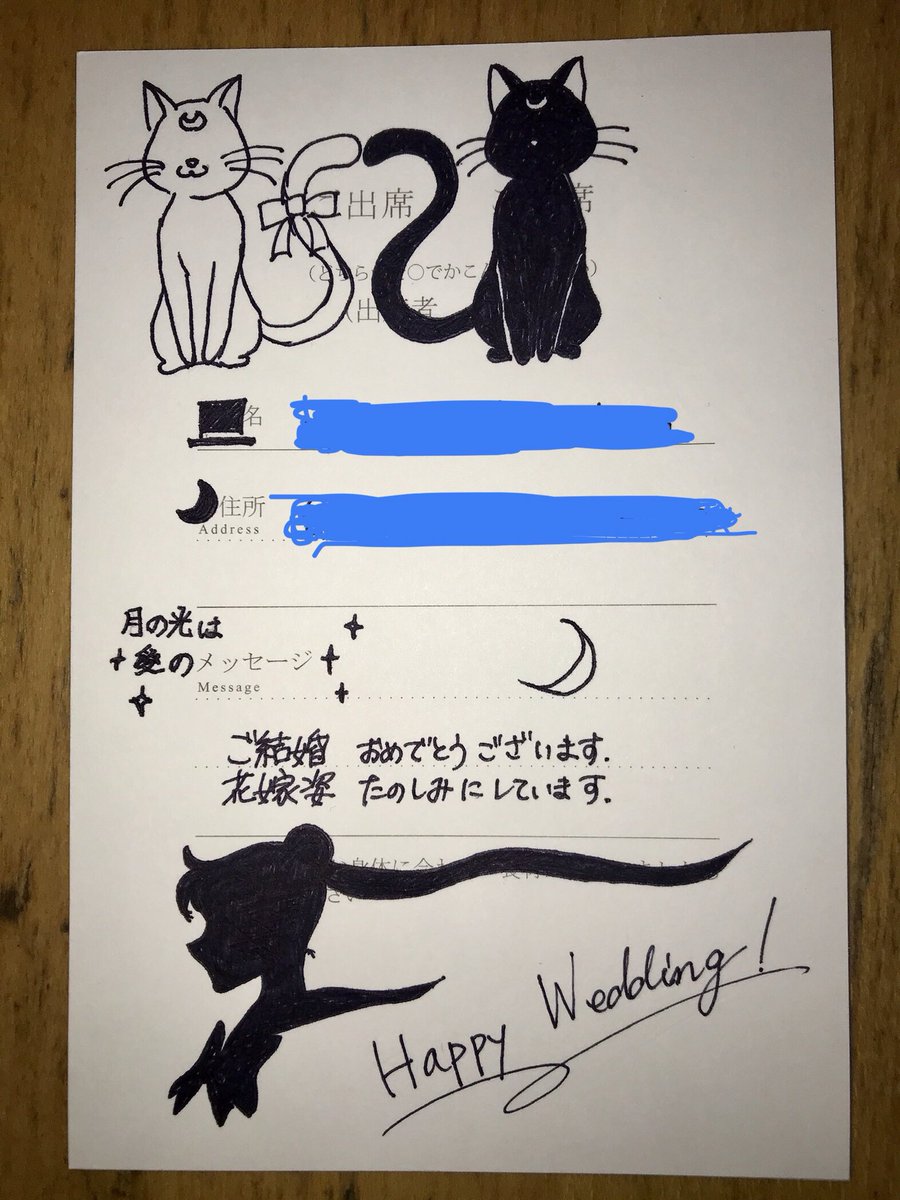 出席
席
でかこ
名
住所
Address
月の光は
愛のメッセージ
Message
ご結婚 おめでとうございます.
花嫁姿 たのしみにしています.
Happy Wedding!